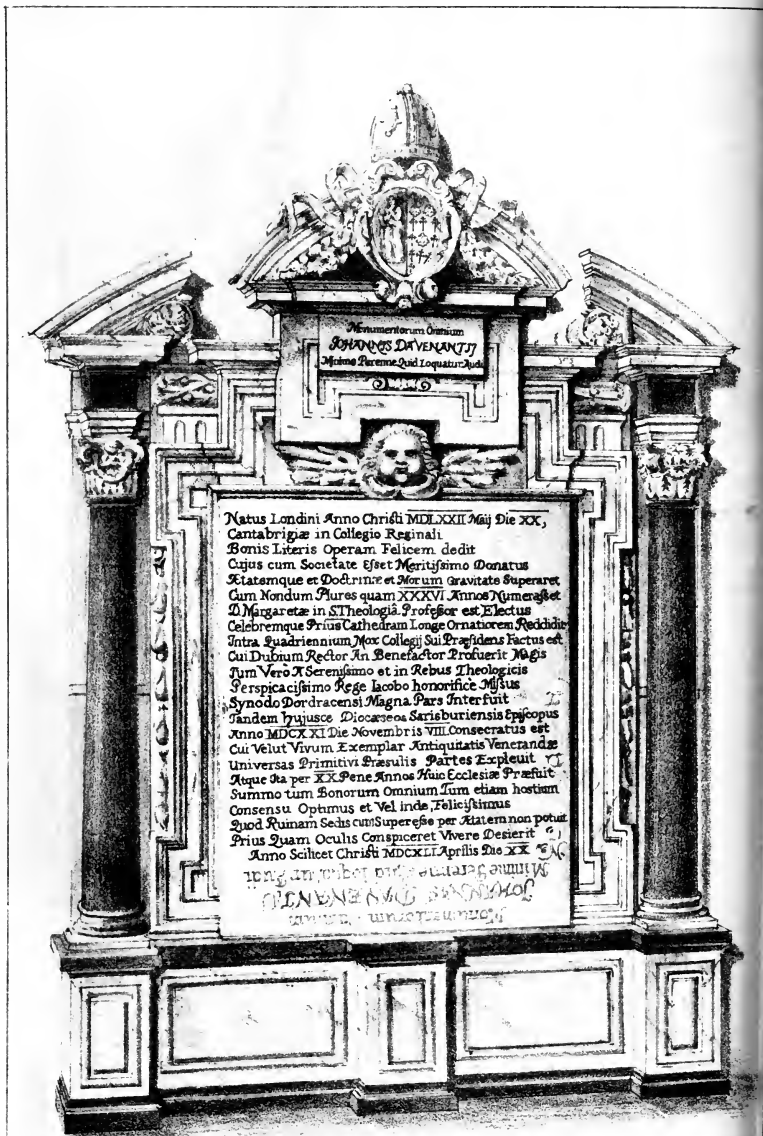 Monumentorum Omnium
JOHANNIS DAVENANTIJ
Minime Perenne Quid Loquatur Audi
Natus Londini Anno Christi MDLXXII Maij Die XX,
Cantabrigiæ in Collegio Reginali
Bonis Literis Operam Felicem dedit
Cujus cum Societate Esset Meritissimo Donatus
Ætatemque et Doctrinæ et Morum Gravitate Superaret
Cum Nondum Plures quam XXXVI Annos Numerasset
D. Margaretæ in S. Theologiâ Professor est Electus
Celebremque Prius Cathedram Longe Ornatiorem Reddidit
Intra Quadriennium Mox Collegij Sui Præsidens Factus est
Cui Dubium Rector An Benefactor Profuerit Magis
Tum Verò A Serenissimo et in Rebus Theologicis
Perspicacissimo Rege Iacobo honorifice Missus
Synodo Dordracensi Magna Pars Interfuit
Tandem hujusce Diocæseos Sarisburiensis Episcopus
Anno MDCXXI Die Novembris VIII Consecratus est
Cui Velut Vivum Exemplar Antiquitatis Venerandæ
Universas Primitivi Præsulis Partes Expleuit
Atque Ita per XX Pene Annos Huic Ecclesiæ Præfuit
Summo tum Bonorum Omnium Tum etiam hostium
Consensu Optimus et Vel inde, Felicissimus
Quod Ruinam Sedis cum Superesse per Ætatem non potuit
Prius Quam Oculis Conspiceret Vivere Desierit
Anno Scilicet Christi MDCXLI Aprilis Die XX